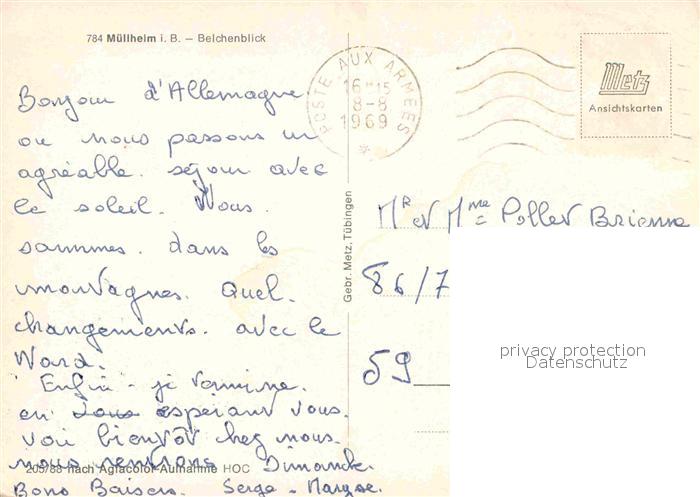 784 Müllheim i. B. – Belchenblick
Bonjour d'Allemagne
ou nous passons un
agréable. séjour avec
le soleil. Nous.
sommes. dans les
montagnes. Quel.
changements. avec le
Nord.
Enfin - je termine.
en espérant vous.
voir bientôt chez nous.
nous rentrons Dimanche.
Bons Baisers. Serge - Maryse.
205/88 nach Agfacolor-Aufnahme HOC
Gebr. Metz, Tübingen
POSTE AUX ARMEES
16H15
8-8
1969
*
Metz
Ansichtskarten
Mr et Mme Pollet Brienne
86/7
59
privacy protection
Datenschutz